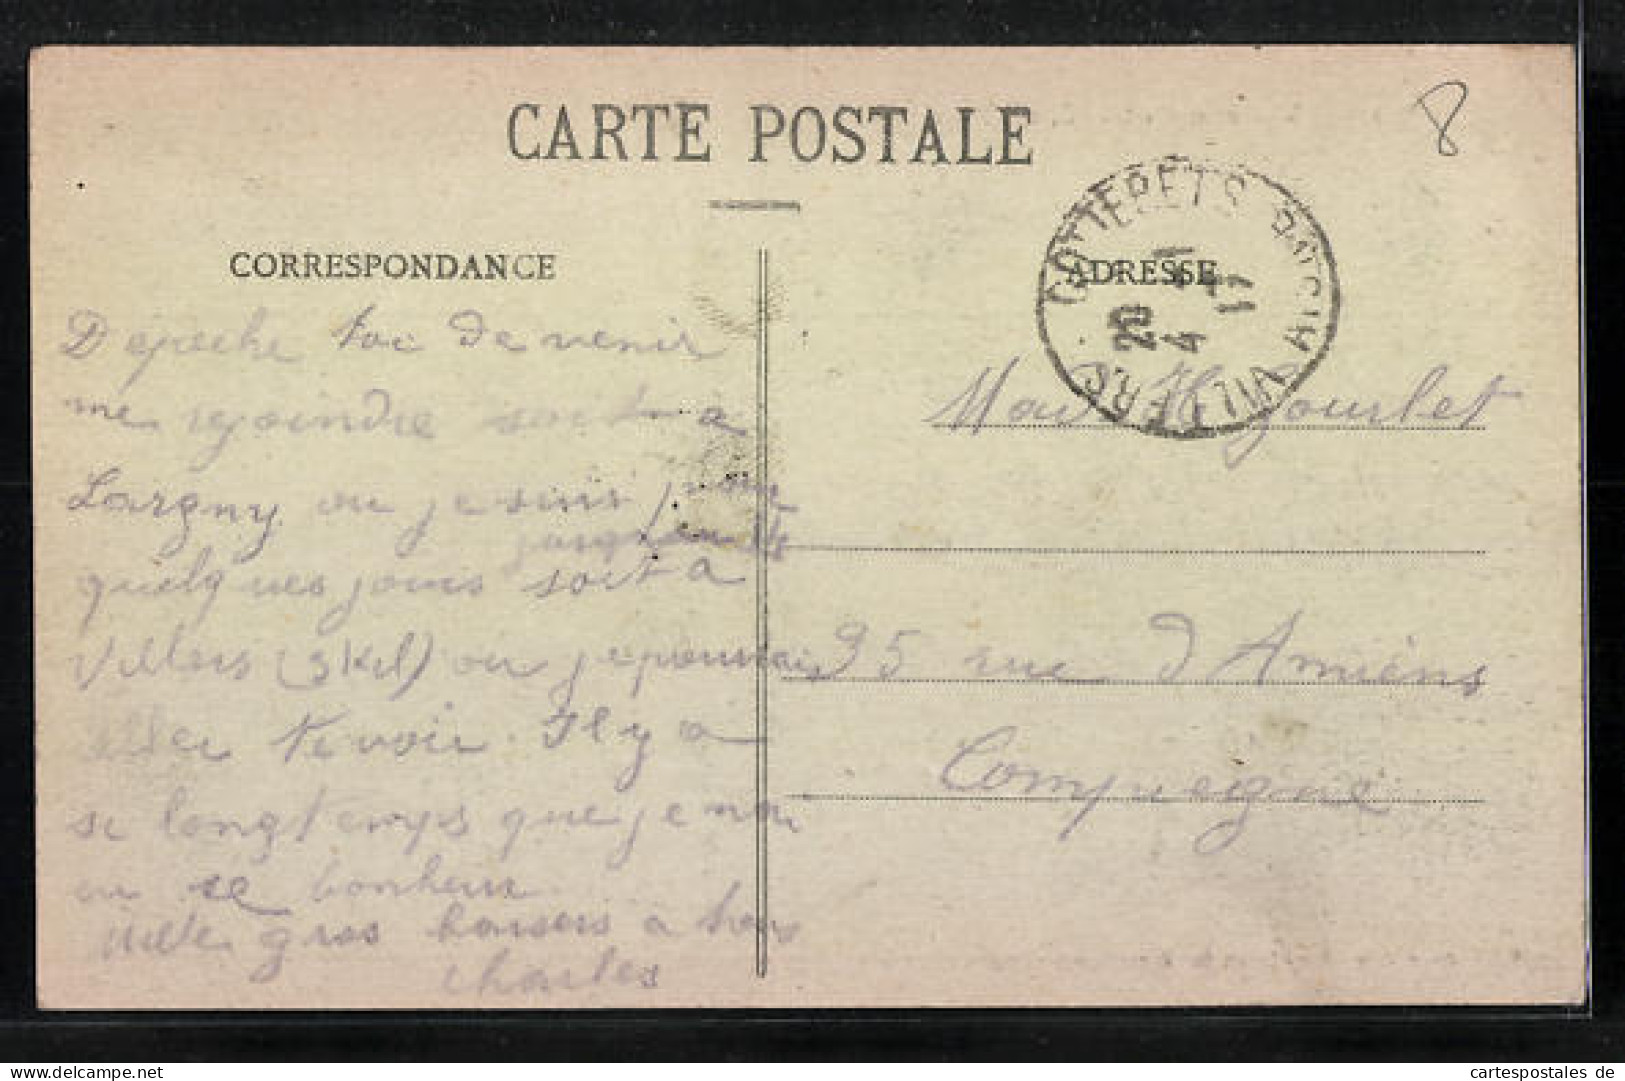 8
CARTE POSTALE
CORRESPONDANCE
ADRESSE
VILLERS COTTERETS
20
4
17
Depeche toi de venir
me rejoindre soit a
Largny ou je suis pour
jusqu'au
quelques jours soit a
Villers (3 Kil) ou je pourrais
aller te voir. Il y a
si longtemps que je n'ai
eu ce bonheur
Mille gros baisers a tous
Charles
Mad H Gourlet
95 rue d'Amiens
Compiegne
cartespostales de